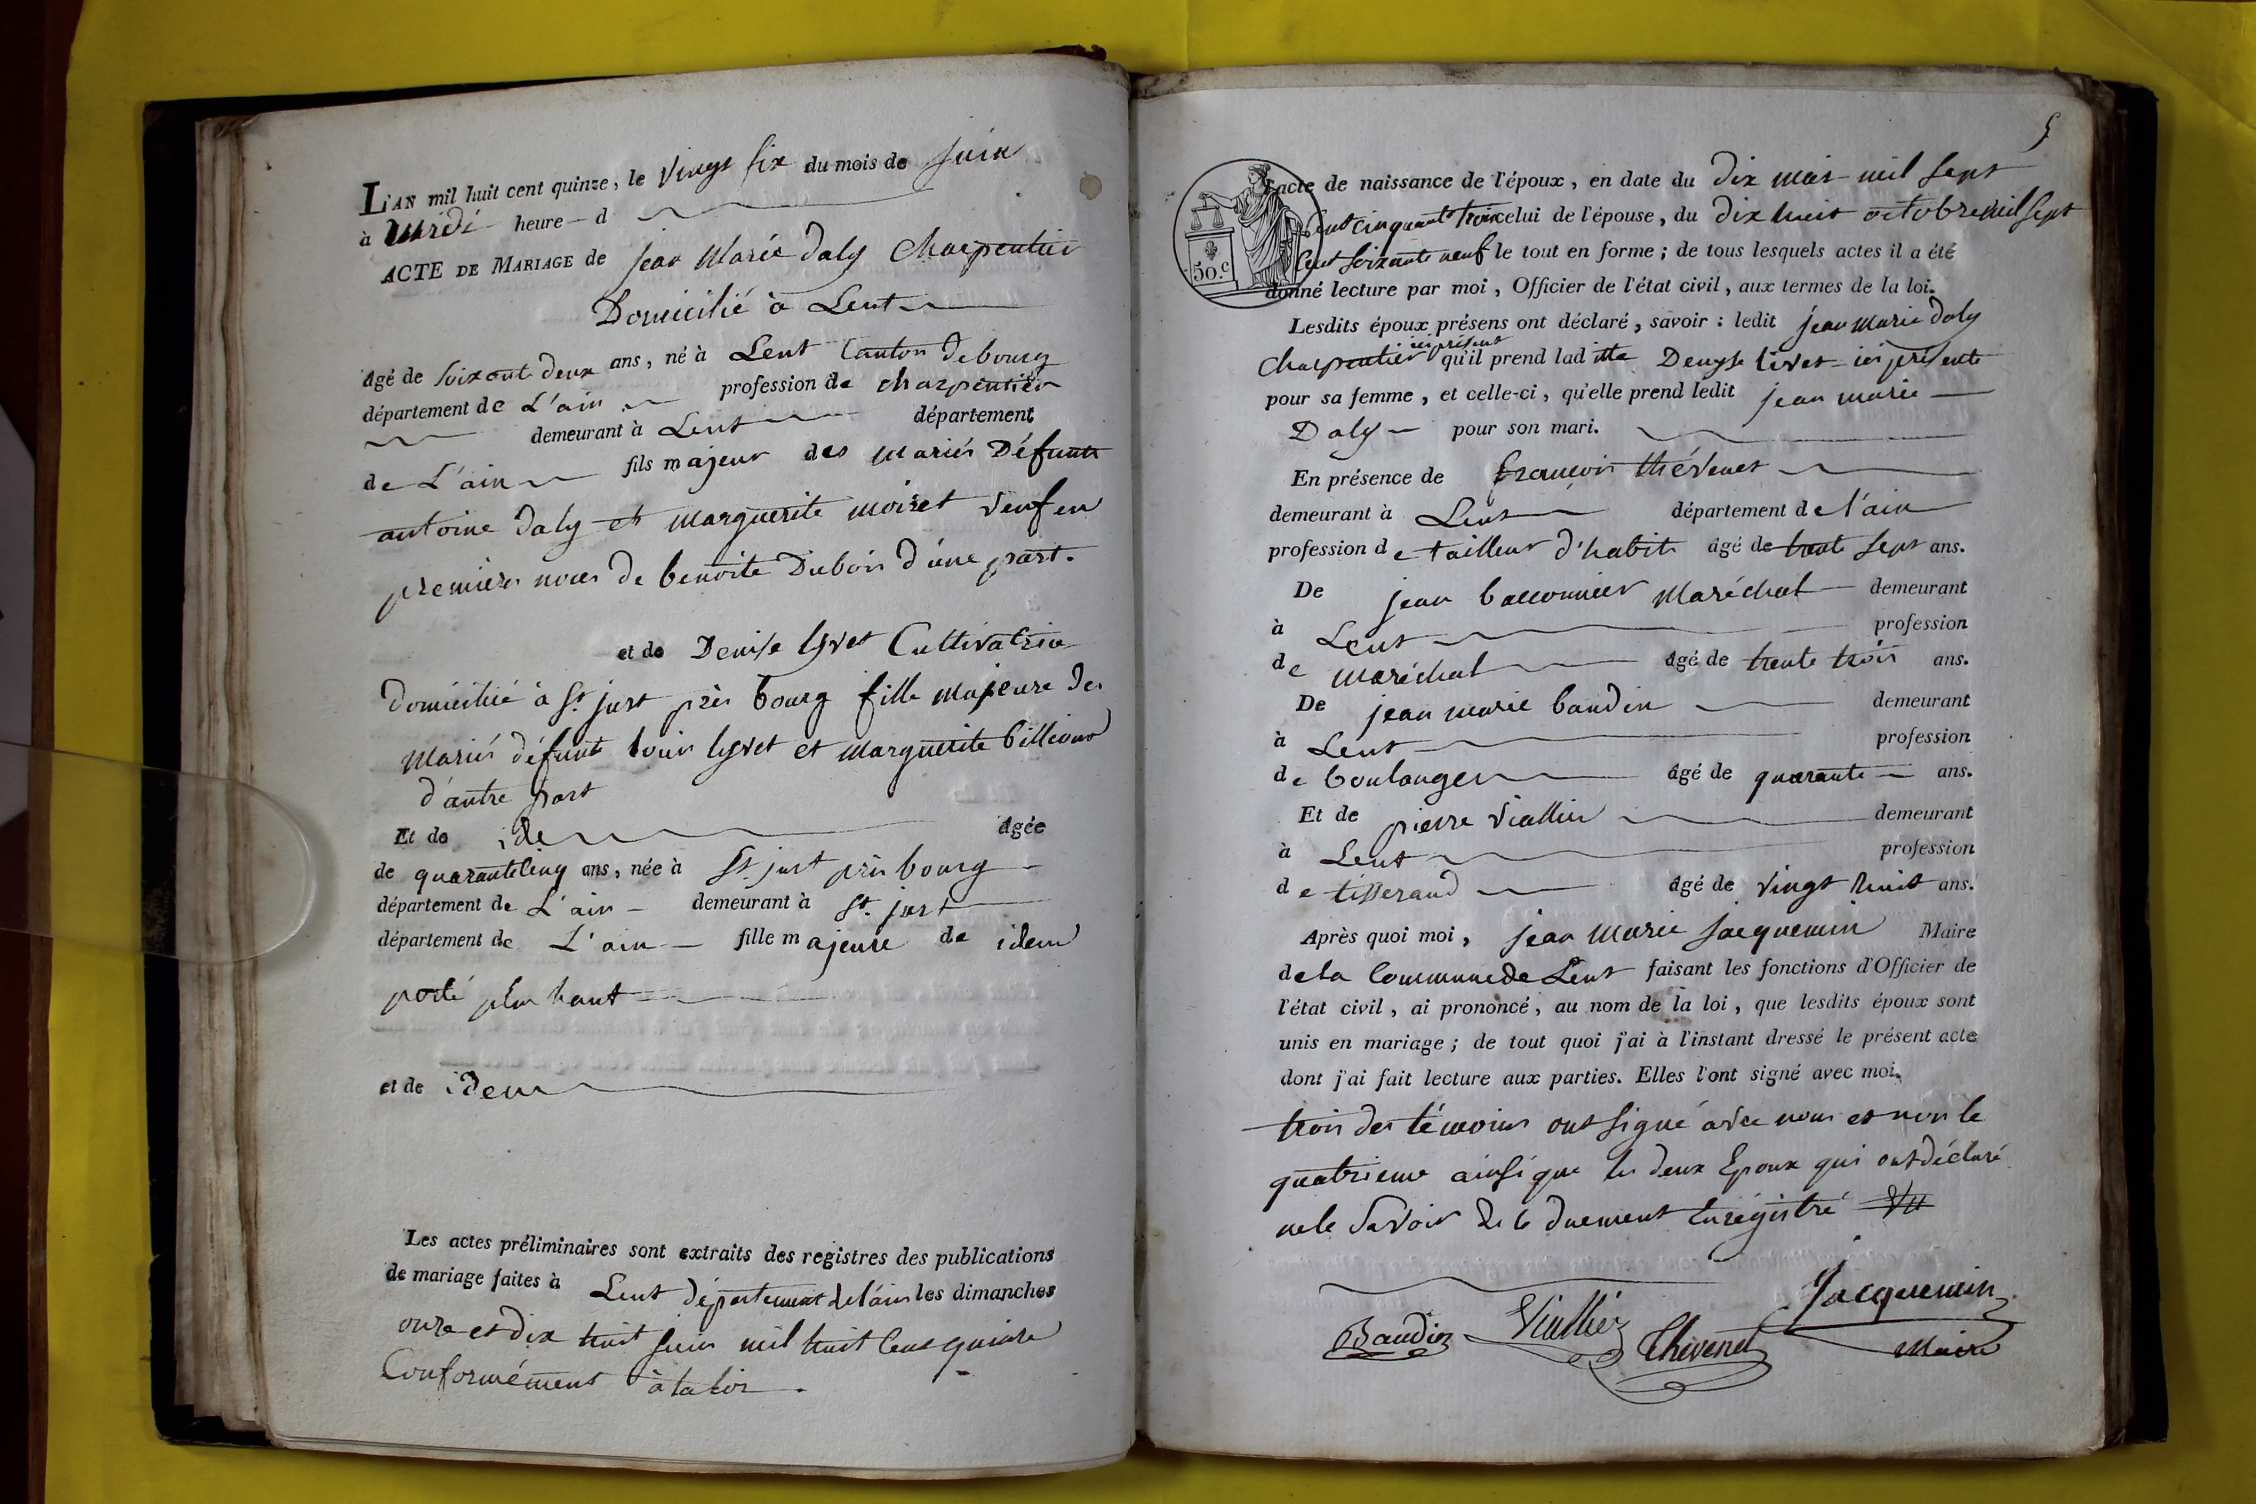 L'AN mil huit cent quinze, le vingt six du mois de juin
à Midi heure d
ACTE DE MARIAGE de jean Marie Daly Charpentier
Domicilié à Lent
âgé de soixante deux ans, né à Lent Canton de bourg
département de L'ain profession de charpentier
demeurant à Lent département
de L'ain fils majeur des mariés Défunts
antoine Daly et marguerite moiret veuf en
premieres noces de benoite Dubois d'une part.
et de Denise lyvet Cultivatrice
domiciliée à St. just près bourg fille majeure des
mariés défunts louis lyvet et marguerite billioud
d'autre part
Et de idem âgée
de quarante cinq ans, née à St. just près bourg
département de L'ain demeurant à St. just
département de L'ain fille majeure de idem
porté plus haut
et de idem
Les actes préliminaires sont extraits des registres des publications
de mariage faites à Lent département de l'ain les dimanches
onze et dix huit juin mil huit Cent quinze
Conformément à la loi.
5
l'acte de naissance de l'époux, en date du dix mai mil sept
Cent cinquante trois celui de l'épouse, du dix huit octobre mil sept
Cent soixante neuf le tout en forme; de tous lesquels actes il a été
50.c
donné lecture par moi, Officier de l'état civil, aux termes de la loi.
Lesdits époux présens ont déclaré, savoir: ledit jean marie Daly
ici présent
Charpentier qu'il prend ladite Denyse livet ici présente
pour sa femme, et celle-ci, qu'elle prend ledit jean marie
Daly pour son mari.
En présence de françois thévenet
demeurant à Lent département de l'ain
profession de tailleur d'habits âgé de trente sept ans.
De jean balconnier Maréchal demeurant
à Lent profession
de maréchal âgé de trente trois ans.
De jean marie baudin demeurant
à Lent profession
de boulanger âgé de quarante ans.
Et de pierre viallier demeurant
à Lent profession
de tisserand âgé de vingt huit ans.
Après quoi moi, jean Marie jacquemin Maire
de la Commune de Lent faisant les fonctions d'Officier de
l'état civil, ai prononcé, au nom de la loi, que lesdits époux sont
unis en mariage; de tout quoi j'ai à l'instant dressé le présent acte
dont j'ai fait lecture aux parties. Elles l'ont signé avec moi.
trois des témoins ont signé avec nous et non le
quatrieme ainsi que les deux Epoux qui ont déclaré
ne le savoir de ce duement Enregistré
Jacquemin
Baudin Viallier Thevenet
Maire